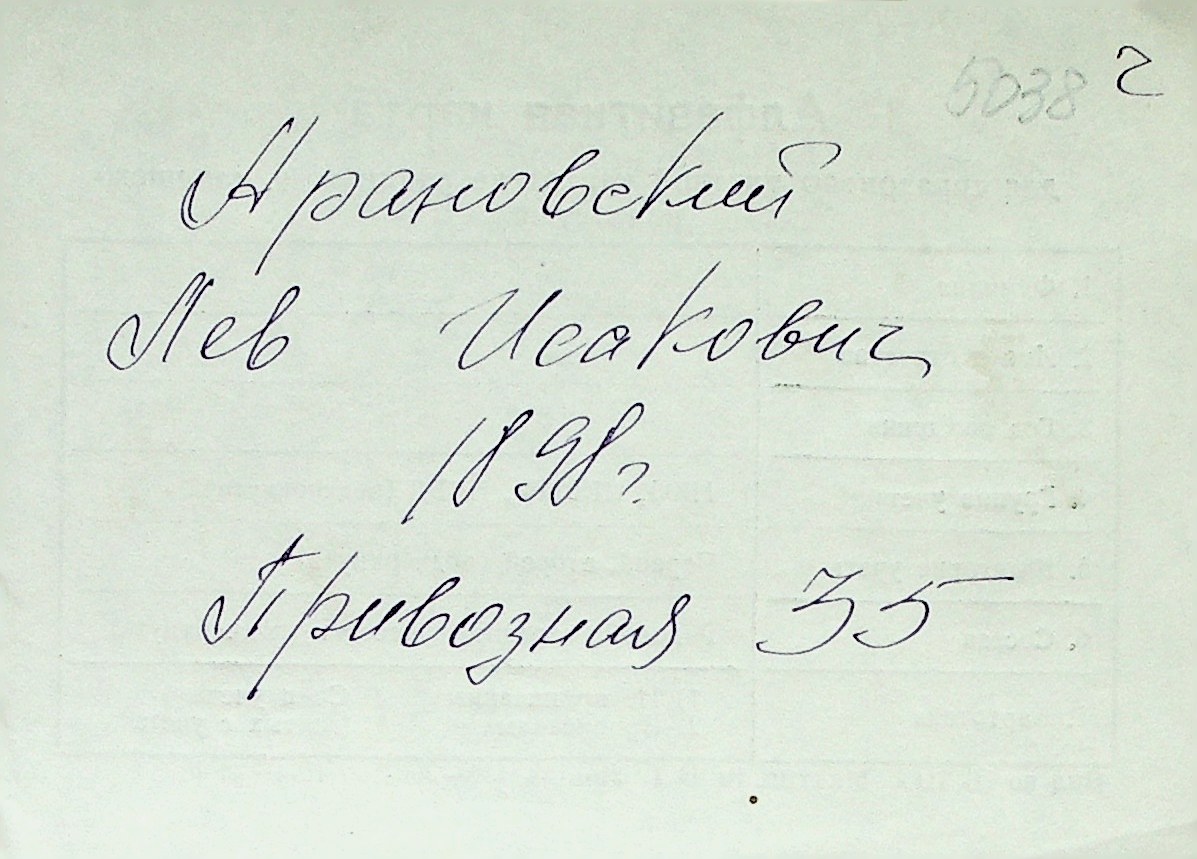 5038 г
Арановский
Лев Исакович
1898 г
Привозная 35